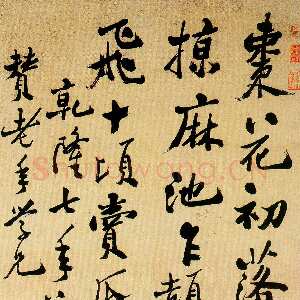 棗花初落
掠麻池乍
飛十頃賣瓜
乾隆七年
贊老年學兄